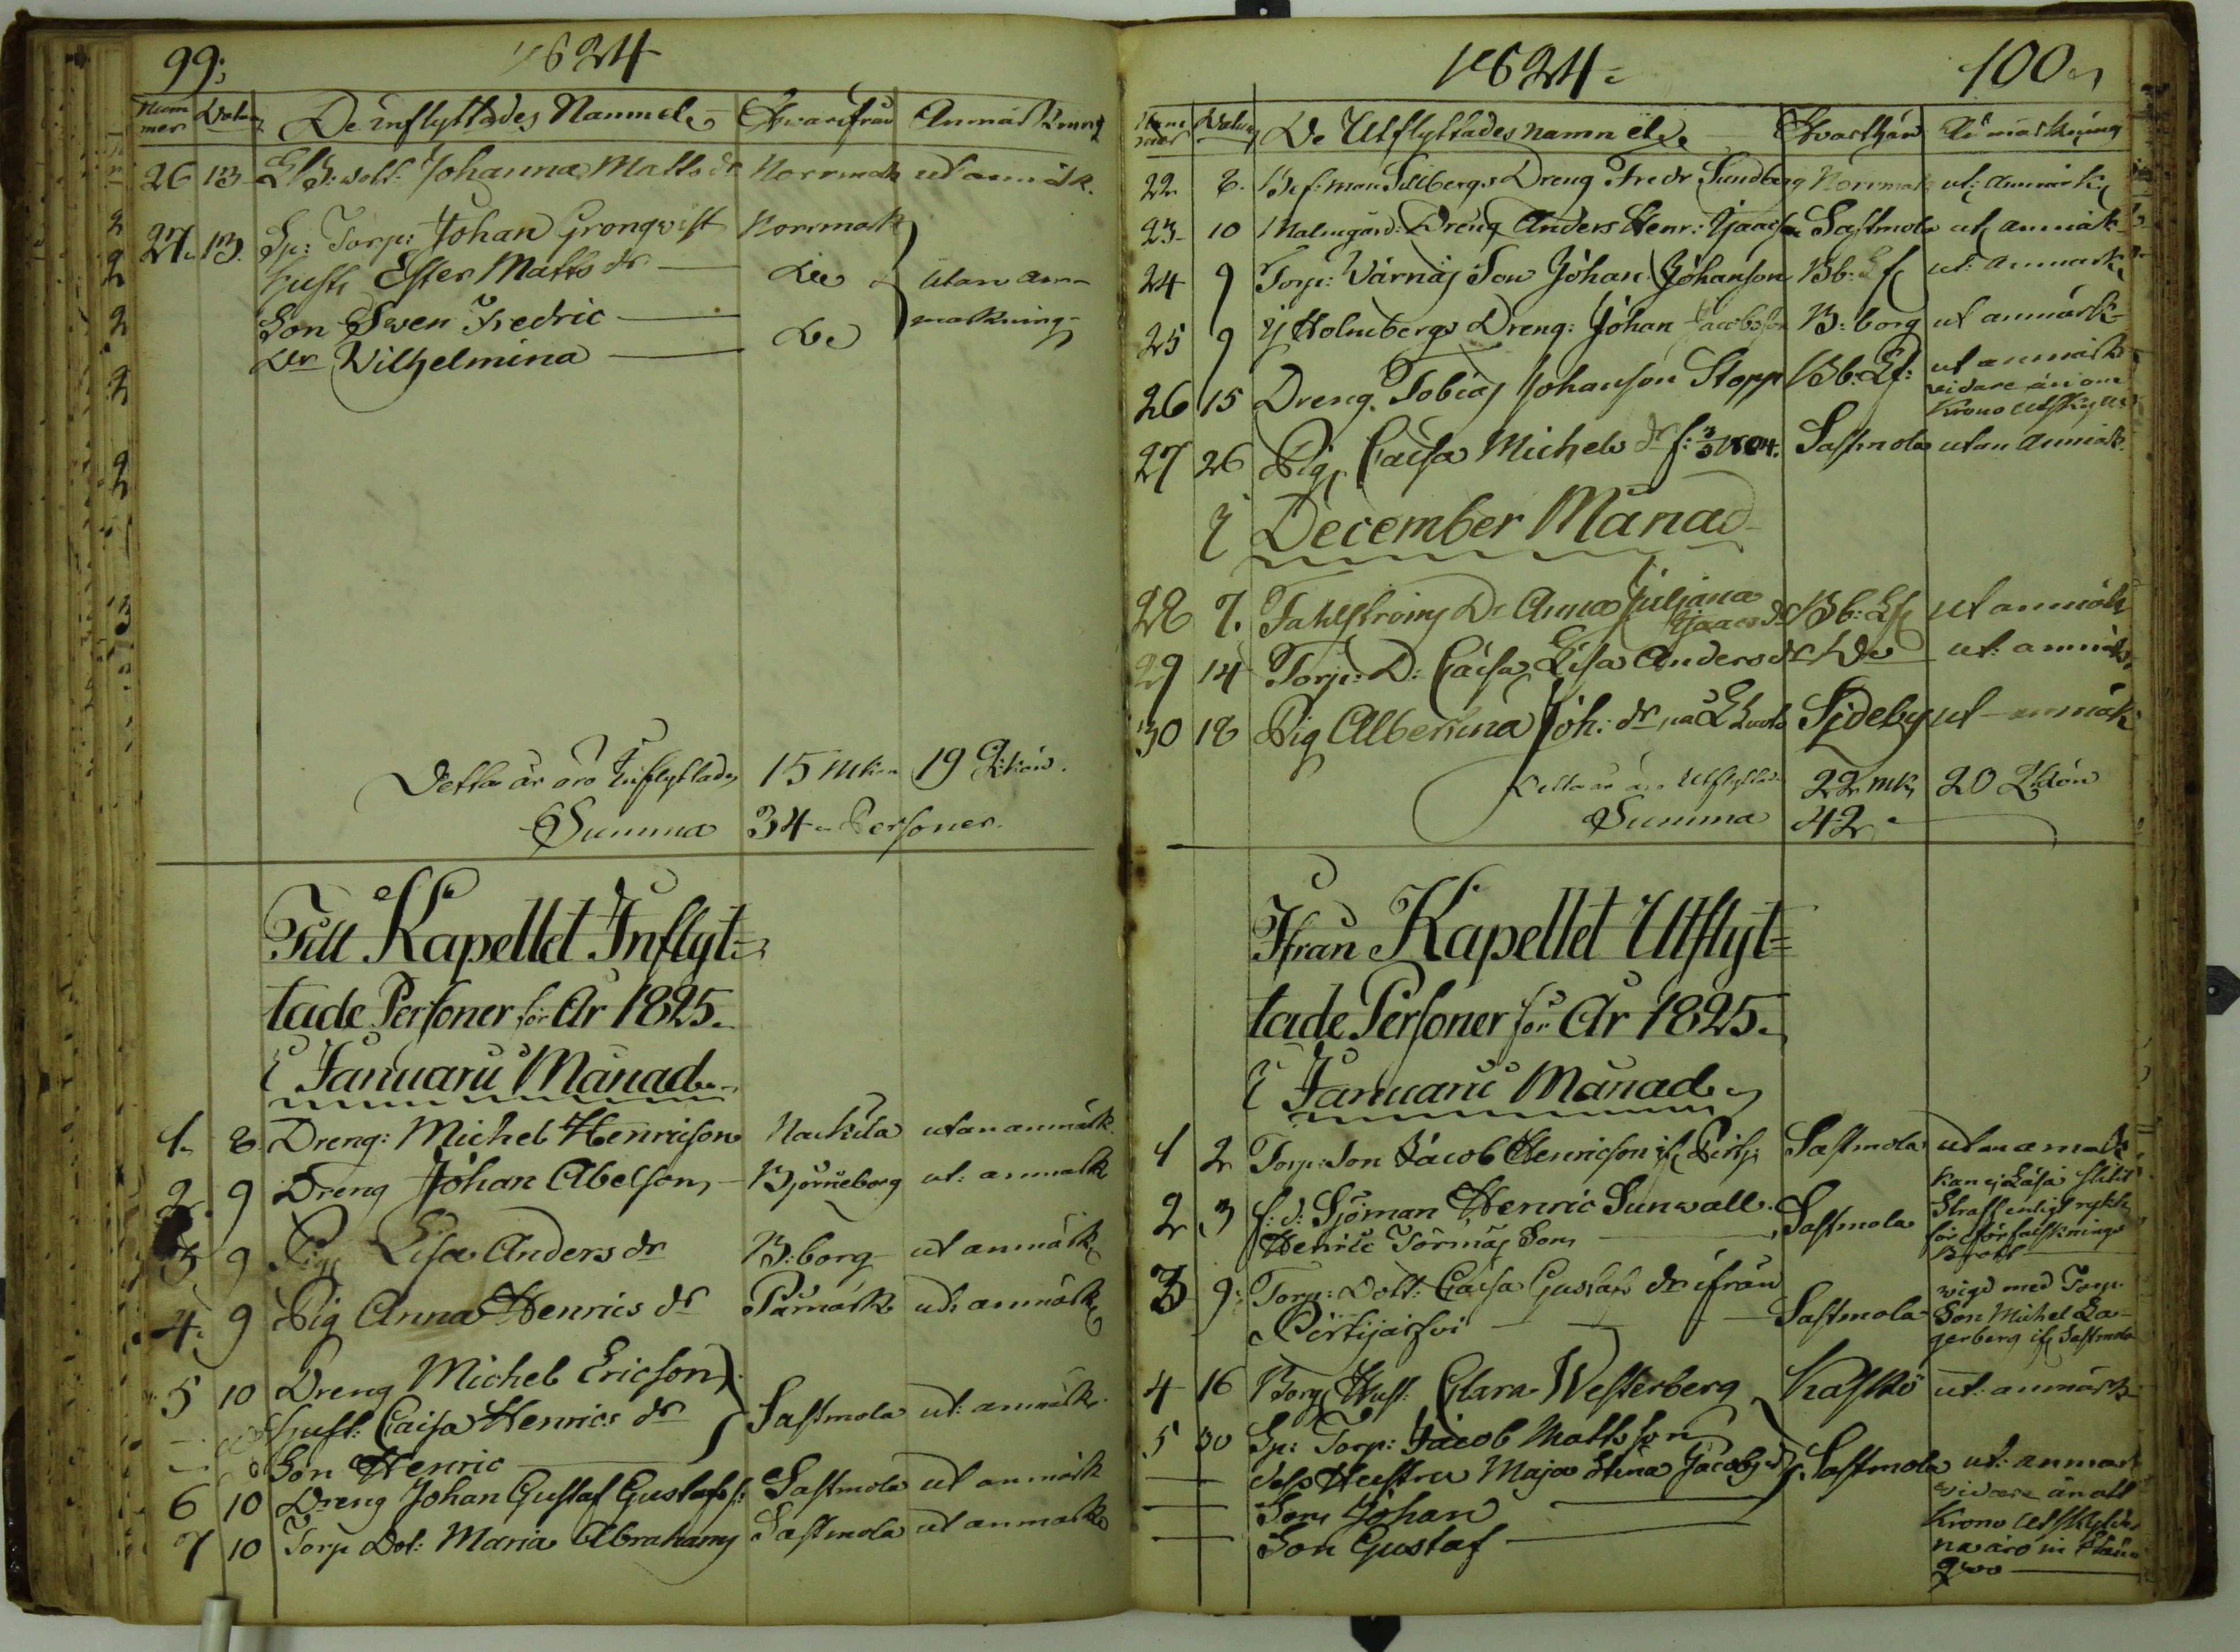 99;
1824
Num mer Datum De Inflyttades Namn etc Hvarifrån Anmärkning
26 13 Johanna Matts dr Norrmark ut anmärk.
27. 13. Sp: Torp: Johan Gronqvist Norrmark
Hustr Ester Matts dr — De utan an-
Son Swen Fredric — märkning
Dr Wilhelmina — De
Detta år äro Inflyttade 15 Mkön 19 Qkön.
Summa 34 Personer.
Till Kapellet Inflyt=
tade Personer för År 1825.
I Januarii Månad
1. 8. Dreng: Michel Henricson utan anmärk.
2. 9 Dreng Johan Abelson, Björneborg ut: anmärk
3 9 Pig Lisa Anders dr B:borg ut anmärk
4. 9 Pig Anna Henrics dr Påmark ut: anmärk
5 10 Dreng Michel Ericson
— Hust: Caisa Henrics dr Sastmola ut: anmärk.
— Son Henric
6 10 Dreng Johan Gustaf Gustafs s: Sastmola ut anmärk
7 10 Torp Dot: Maria Abrahams Sastmola ut anmärk
1824
100
Datum De Utflyttades namn etc Hvarthän Anmärkning
22 8. Sillbergs Dreng Fredr Sundberg Norrmark ut: anmärk
23 10 Malmgård: Dreng Anders Henr: Sastmola ut anmärk
24 9 Torp: Värnäs Son Johan Johanson Bb: Lf ut: anmärk
25 9 Holmbergs Dreng: Johan Jacobsson B:borg ut anmärk
26 15 Dreng Tobias Johanson Stopp Bb: Lf: ut anmärk
vidare än om
Krono utskyller
27 26 Pig Caisa Michels dr f: 3/3 1804. Sastmola utan anmärk.
I December Månad
28 7. Fahlströms Dr Anna Juliana Bb: Lf ut anmärk
29 14 Torp: D: Caisa Lisa Anders dr De ut: anmärk
30 18 Pig Albertina Joh: dr Sideby ut anmärk
Detta år äro Utflyttade 22 mk, 20 Qkön
Summa 42
Ifrån Kapellet Utflyt=
tade Personer för År 1825.
I Januarii Månad
1 2 Torp: Son Jacob Henricson if Sastmola utan anmärk
kan ej Läsa
2 3 f: d: Sjöman Henric Sunwall. Sastmola Straff enligt
Henric Törmäs Son, för förfalsknings
Brott
3 9: Torp: Dott: Caisa Gustafs dr ifrån wigd med Torp.
Sastmola Son Michel La-
gerberg if Sastmola
4 16 Borg Hust: Clara Westerberg Kaskö ut: anmärk
5 30 Sp: Torp: Jacob Mattsson
— dess Hustru Maja Stina Jacobs dr Sastmola ut: anmärk
— Son Johan vidare än att
— Son Gustaf Krono Utskylder
na äro in
quo